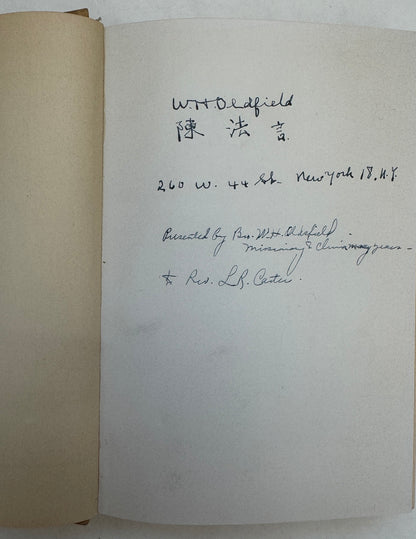 W.H.Oldfield
陳 法 言
260 W. 44 St. New York 18, N.Y.
Presented by Bro. W.H. Oldfield -
Missionary to China many years -
to Rev. L.R. Carter.